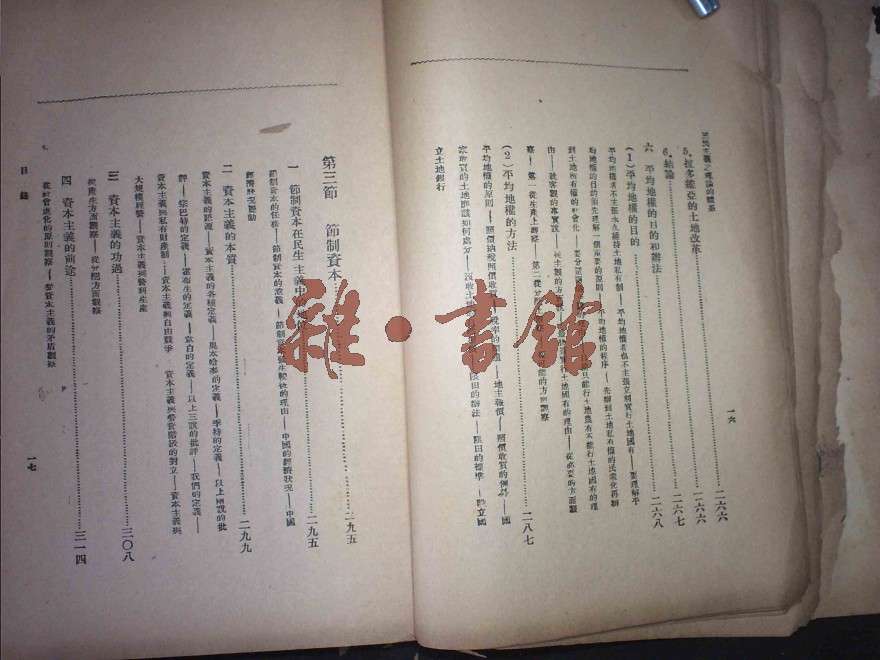 三民主義之理論的體系
一六
5.拉多維亞的土地改革……二六六
6.結論……二六六
六 平均地權的目的和辦法……二六七
(1)平均地權的目的……二六八
平均地權者不主張永久維持土地私有制——平均地權者也不主張立刻實行土地國有——要理解平
均地權的目的須先理解一個重要的原則——平均地權的程序——先辦到土地私有權的民衆化再辦
到土地所有權的社會化
只能行土地農有不能行土地國有的理
由——就客觀的事實說——從主觀的方面說
行土地國有的理由——從必要的方面觀
察——第一從生產上觀察——第二從分配
能的方面觀察
(2)平均地權的方法……二八七
平均地權的原則——照價納稅照價收買
稅率的問題——地主報價——照價收買的例外——國
家收買的土地應該如何處分
限田的辦法——限田的標準——設立國
立土地銀行
第三節 節制資本……二九五
一 節制資本在民生主義中的地位……二九五
節制資本的任務——節制資本的意義——節制資本發生較後的理由——中國的經濟狀況——中國
經濟狀況變動
二 資本主義的本質……二九九
資本主義的語源——資本主義的各種定義——奧本哈麥的定義——季特的定義——以上兩說的批
評——宗巴特的定義——霍布生的定義——柴白的定義——以上三說的批評——我們的定義——
資本主義與私有財產制——資本主義與自由競爭——資本主義與勞資階級的對立——資本主義與
大規模經營——資本主義與營利生產
三 資本主義的功過……三〇八
從產生方面觀察——從分配方面觀察
四 資本主義的前途……三一四
從社會進化的原則觀察——從資本主義的矛盾觀察
目錄
一七
雜·書館